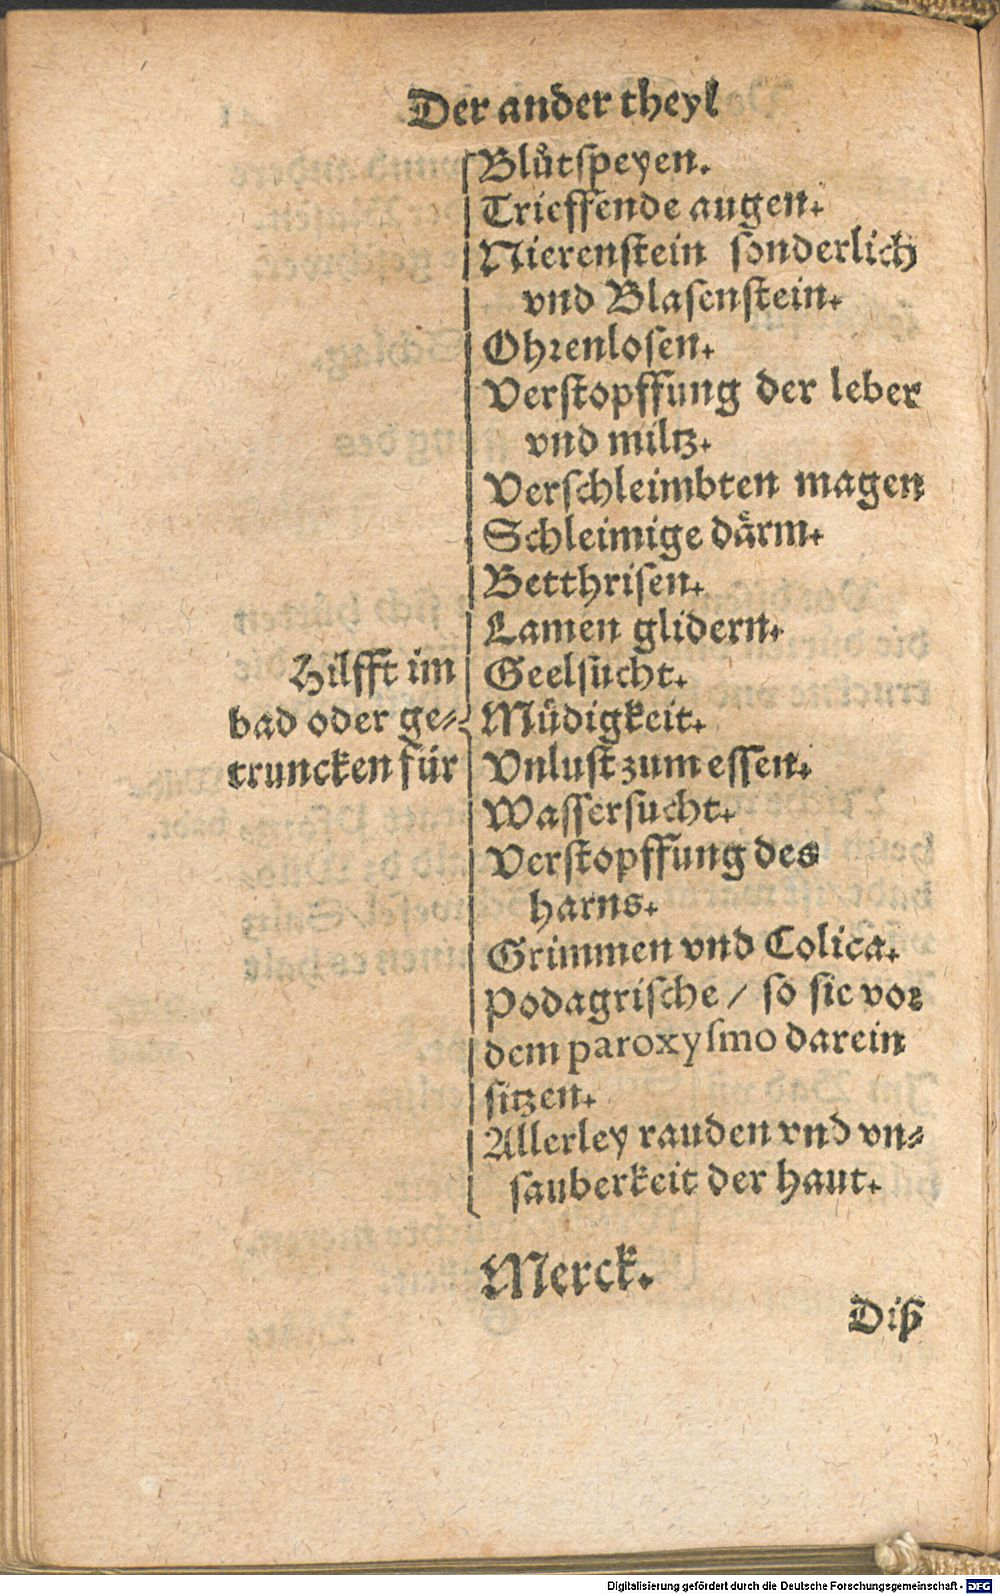 Der ander theyl
Blůtspeyen.
Trieffende augen.
Nierenstein sonderlich
vnd Blasenstein.
Ohrenlosen.
Verstopffung der leber
vnd miltz.
Verschleimbten magen
Schleimige därm.
Betthrisen.
Lamen glidern.
Hilfft im
bad oder ge-
truncken für
Geelsucht.
Müdigkeit.
Vnlust zum essen.
Wassersucht.
Verstopffung des
harns.
Grimmen vnd Colica.
Podagrische / so sie vor
dem paroxysmo darein
sitzen.
Allerley rauden vnd vn-
sauberkeit der haut.
Merck.
Diß
Digitalisierung gefördert durch die Deutsche Forschungsgemeinschaft - DFG